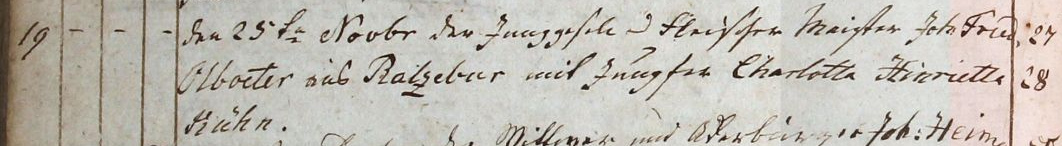 19 - - - den 25ten Novbr der Junggesele u Fleischer Meister Joh Fried. 27
Olboeter aus Ratzebur mit Jungfer Charlotta Hinrietta 28
Kühn.
Wittwer und Ackerbürger Joh: Heinr